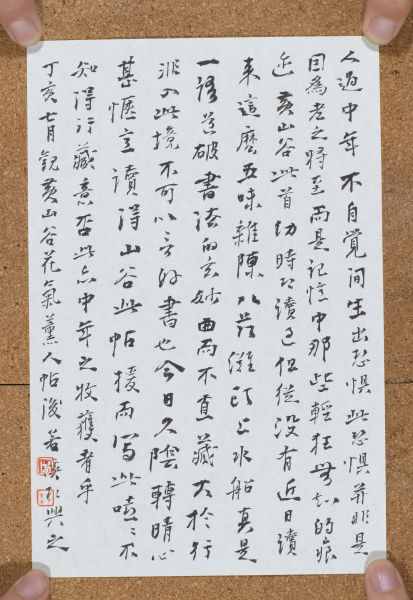 人過中年不自覺間生出恐惧此恐惧并非是
因為老之将至而是記憶中那些輕狂無知的痕
迹黃山谷此首幼時即讀過但從没有近日讀
来這麼五味雜陳八節灘頭上水船真是
一語道破書法的玄妙曲而不直藏大於行
非入此境不可以言好書也今日久陰轉晴心
甚惬意讀得山谷此帖援而寫此嘻嘻不
知得行藏意否此亦中年之收獲者乎
丁亥七月観黃山谷花氣薰人帖後若